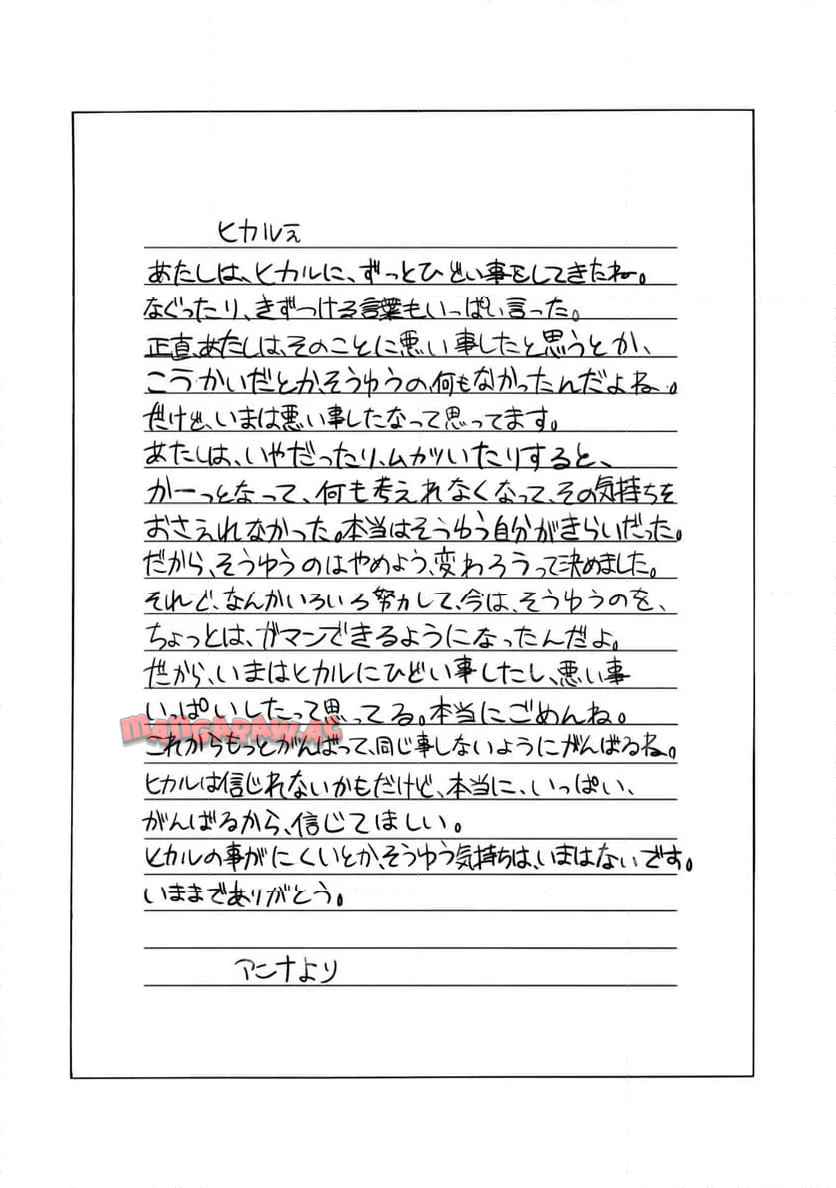 ヒカルぇ
あたしは、ヒカルに、ずっとひどい事をしてきたね。
なぐったり、きずつける言葉もいっぱい言った。
正直、あたしは、そのことに悪い事したと思うとか、
こうかいだとか、そうゆうの、何もなかったんだよね。
だけど、いまは悪い事したなって思ってます。
あたしは、いやだったり、ムカツいたりすると、
かーっとなって、何も考えれなくなって、その気持ちを
おさえれなかった。本当はそうゆう自分がきらいだった。
だから、そうゆうのはやめよう、変わろうって決めました。
それど、なんかいろいろ努力して、今は、そうゆうのを、
ちょっとは、ガマンできるようになったんだよ。
だから、いまはヒカルにひどい事したし、悪い事
いっぱいしたって思ってる。本当にごめんね。
MANGARAW.AC
これからもっとがんばって、同じ事しないようにがんばるね。
ヒカルは信じれないかもだけど、本当に、いっぱい、
がんばるから、信じてほしい。
ヒカルの事がにくいとか、そうゆう気持ちは、いまはないです。
いままでありがとう。
アンナより